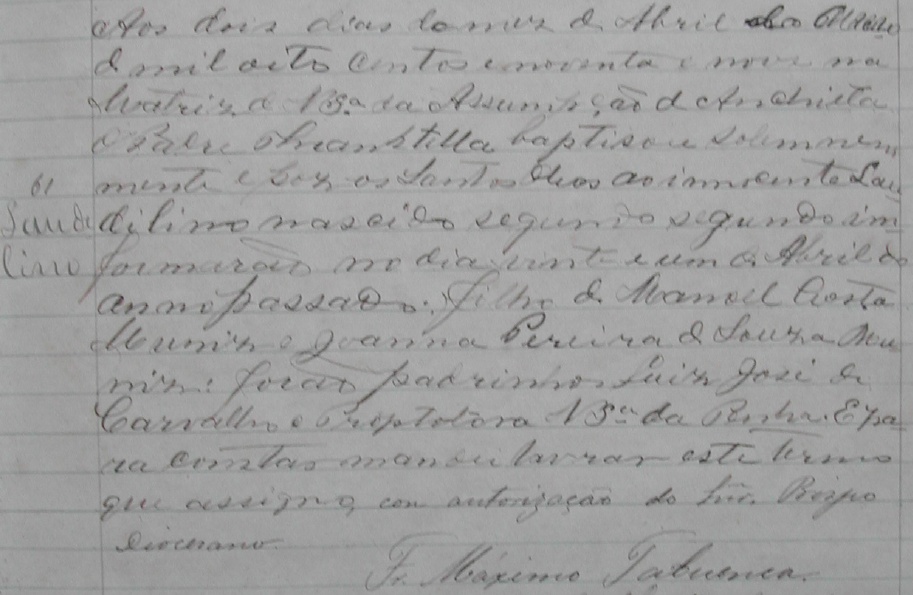 Aos dois dias do mez de Abril do
de mil oito centos e noventa e nove na
Matriz de N Sra da Assumpção d Anchieta
o Padre baptisou solemnem
61
mente e poz os Santos Oleos ao innocente Lau
Laude
dilino nascido segundo segundo im
lino
formarão no dia vinte e um de Abril do
anno passado: filho de Manoel Costa
Muniz e Joanna Pereira de Souza Mu
niz: forão padrinhos Luiz José de
Carvalho e Proptotora N Sra da Penha. E pa
ra constar mandei lavrar este termo
que assigno, con autorização do Snr. Bispo
Diocesano.
Fr. Máximo Tabuenca.